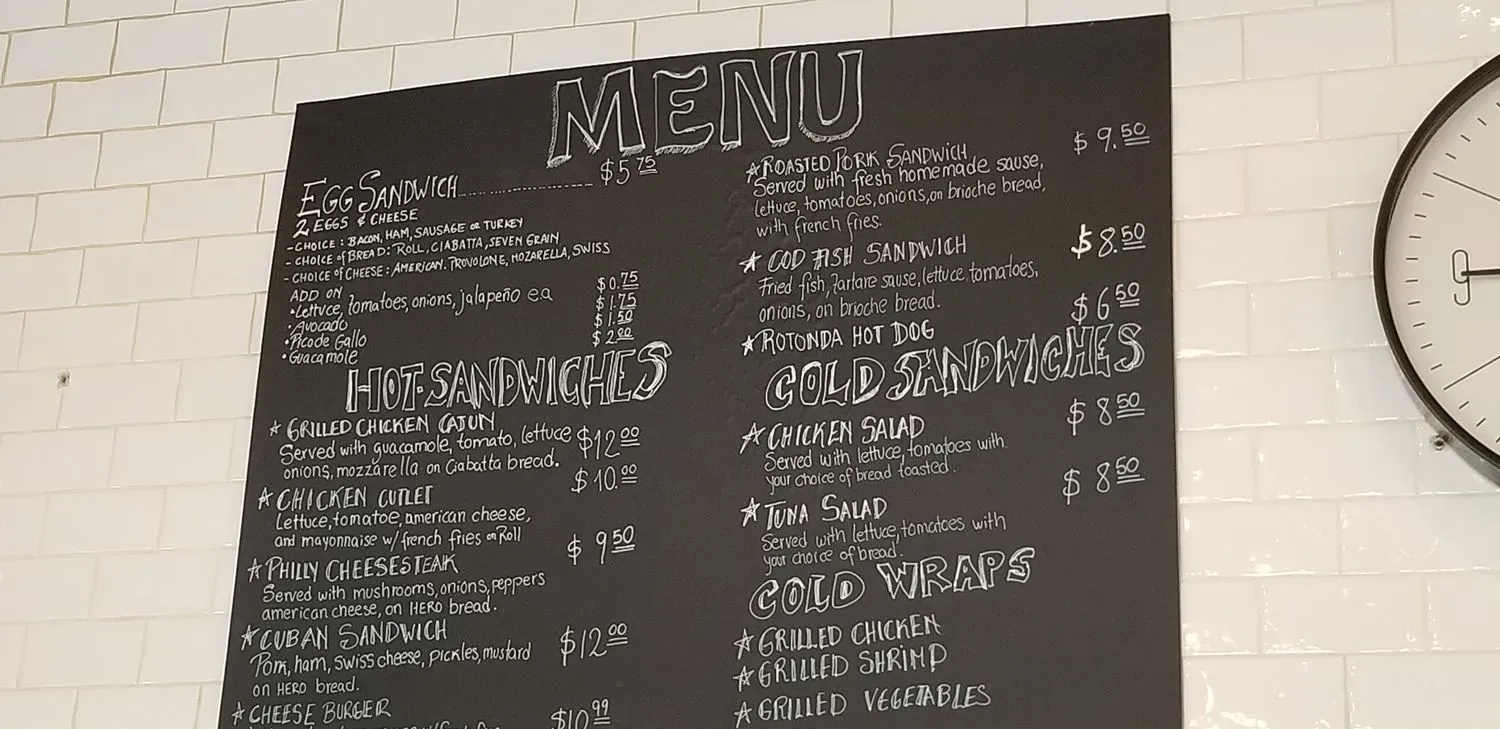 MENU
EGG SANDWICH $5 75
2 EGGS & CHEESE
- CHOICE: BACON, HAM, SAUSAGE OR TURKEY
- CHOICE of BREAD: ROLL, CIABATTA, SEVEN GRAIN
- CHOICE of CHEESE: AMERICAN. PROVOLONE, MOZARELLA, SWISS
ADD ON
• Lettuce, tomatoes, onions, jalapeño ea $0.75
• Avocado $1.75
• Pico de Gallo $1.50
• Guacamole $2.00
HOT-SANDWICHES
☆ GRILLED CHICKEN CAJUN
Served with guacamole, tomato, lettuce $12 00
onions, mozzarella on Ciabatta bread.
☆ CHICKEN CUTLET $10.00
Lettuce, tomatoe, american cheese,
and mayonnaise w/ french fries on Roll
☆ PHILLY CHEESESTEAK $9 50
Served with mushrooms, onions, peppers
american cheese, on HERO bread.
☆ CUBAN SANDWICH $12 00
Pork, ham, swiss cheese, pickles, mustard
on HERO bread.
☆ CHEESE BURGER $10 99
☆ ROASTED PORK SANDWICH $9.50
Served with fresh homemade sause,
lettuce, tomatoes, onions, on brioche bread,
with french fries.
☆ COD FISH SANDWICH $8.50
Fried fish, Tartare sause, lettuce, tomatoes,
onions, on brioche bread.
☆ ROTONDA HOT DOG $6 50
COLD SANDWICHES
☆ CHICKEN SALAD $8 50
Served with lettuce, tomatoes with
your choice of bread toasted.
☆ TUNA SALAD $8 50
Served with lettuce, tomatoes with
your choice of bread.
COLD WRAPS
☆ GRILLED CHICKEN
☆ GRILLED SHRIMP
☆ GRILLED VEGETABLES
9